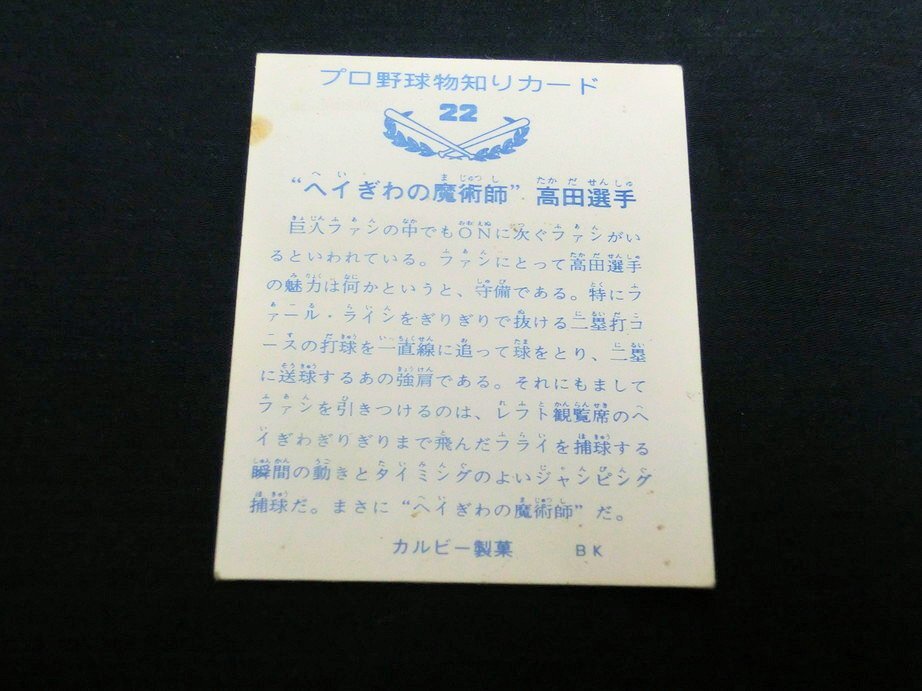 プロ野球物知りカード
22
“ヘイぎわの魔術師” 高田選手
巨人ファンの中でもONに次ぐファンがい
るといわれている。ファンにとって高田選手
の魅力は何かというと、守備である。特にフ
ァール・ラインをぎりぎりで抜ける二塁打コ
ースの打球を一直線に追って球をとり、二塁
に送球するあの強肩である。それにもまして
ファンを引きつけるのは、レフト観覧席のヘ
イぎわぎりぎりまで飛んだフライを捕球する
瞬間の動きとタイミングのよいジャンピング
捕球だ。まさに“ヘイぎわの魔術師”だ。
カルビー製菓 BK